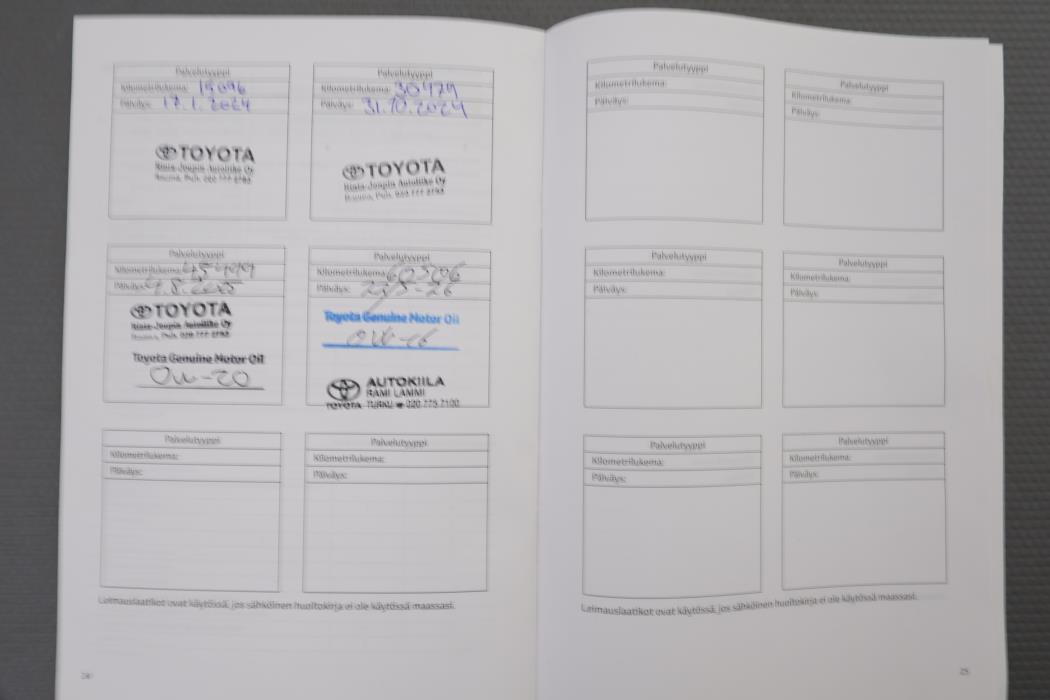 Palvelutyyppi
Kilometrilukema: 15096
Päiväys: 17.1.2024
TOYOTA
Rinta-Joupin Autoliike Oy
Puh. 020 777
Palvelutyyppi
Kilometrilukema: 30479
Päiväys: 31.10.2024
TOYOTA
Rinta-Joupin Autoliike Oy
Puh. 020 777
Palvelutyyppi
Kilometrilukema:
Päiväys:
Palvelutyyppi
Kilometrilukema:
Päiväys:
Palvelutyyppi
Kilometrilukema:
Päiväys:
TOYOTA
Rinta-Joupin Autoliike Oy
Puh. 020 777
Toyota Genuine Motor Oil
0W-20
Palvelutyyppi
Kilometrilukema: 60306
Päiväys:
Toyota Genuine Motor Oil
0W-16
AUTOKIILA
RAMI LAMMI
TOYOTA TURKU 020 775 7100
Palvelutyyppi
Kilometrilukema:
Päiväys:
Palvelutyyppi
Kilometrilukema:
Päiväys:
Palvelutyyppi
Kilometrilukema:
Päiväys:
Palvelutyyppi
Kilometrilukema:
Päiväys:
Leimauslaatikot ovat käytössä, jos sähköinen huoltokirja ei ole käytössä maassasi.
Palvelutyyppi
Kilometrilukema:
Päiväys:
Palvelutyyppi
Kilometrilukema:
Päiväys:
Leimauslaatikot ovat käytössä, jos sähköinen huoltokirja ei ole käytössä maassasi.
24
25